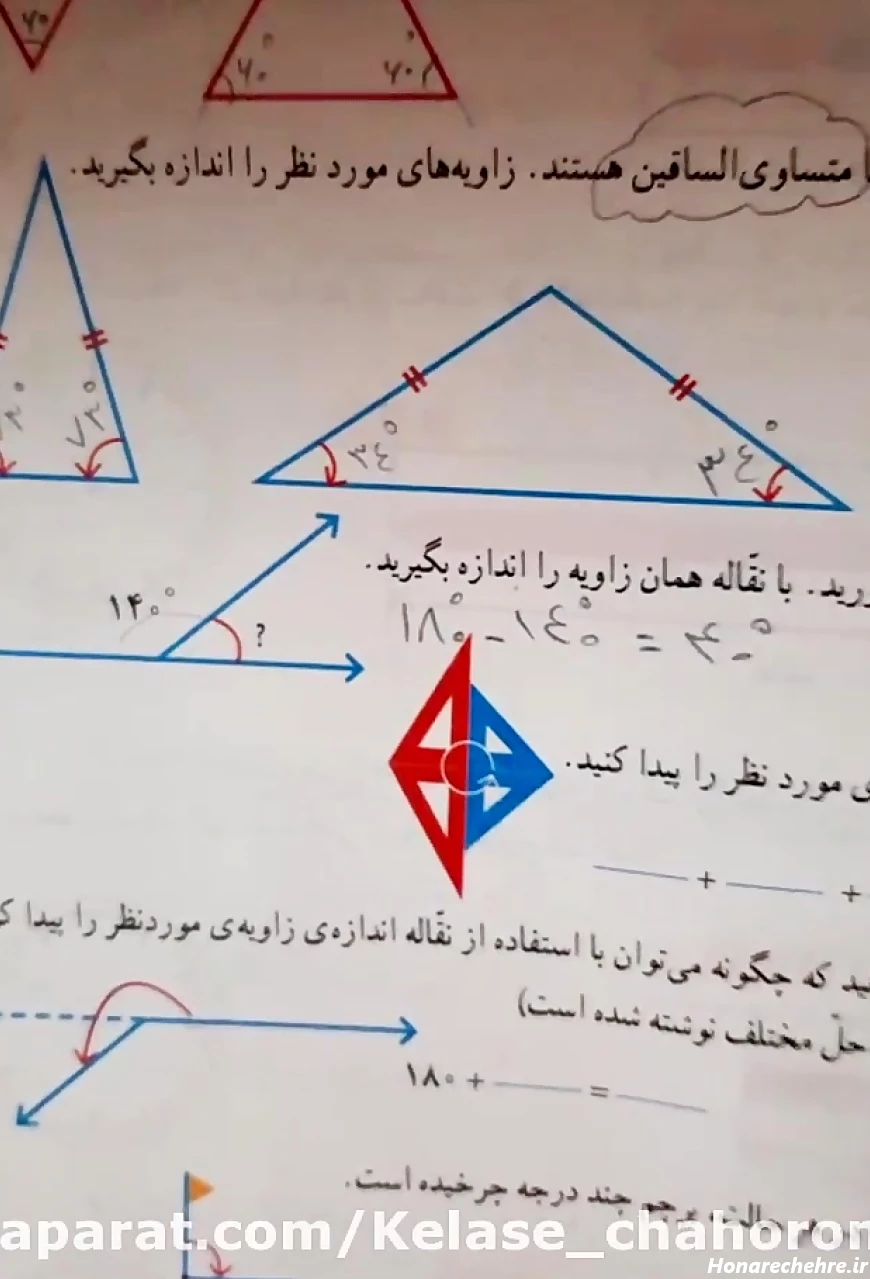 ۶۰
۶۰° ۶۰°
متساوی‌الساقین هستند. زاویه‌های مورد نظر را اندازه بگیرید.
۷۳° ۳٤° ۳٤°
با نقّاله همان زاویه را اندازه بگیرید.
۱۴۰° ?
۱۸۰° - ۱٤۰° = ۴۰°
مورد نظر را پیدا کنید.
+ +
که چگونه می‌توان با استفاده از نقّاله اندازه‌ی زاویه‌ی موردنظر را پیدا
حلّ مختلف نوشته شده است)
۱۸۰ + =
چند درجه چرخیده است.
aparat.com/Kelase_chahorom
Honarechehre.ir